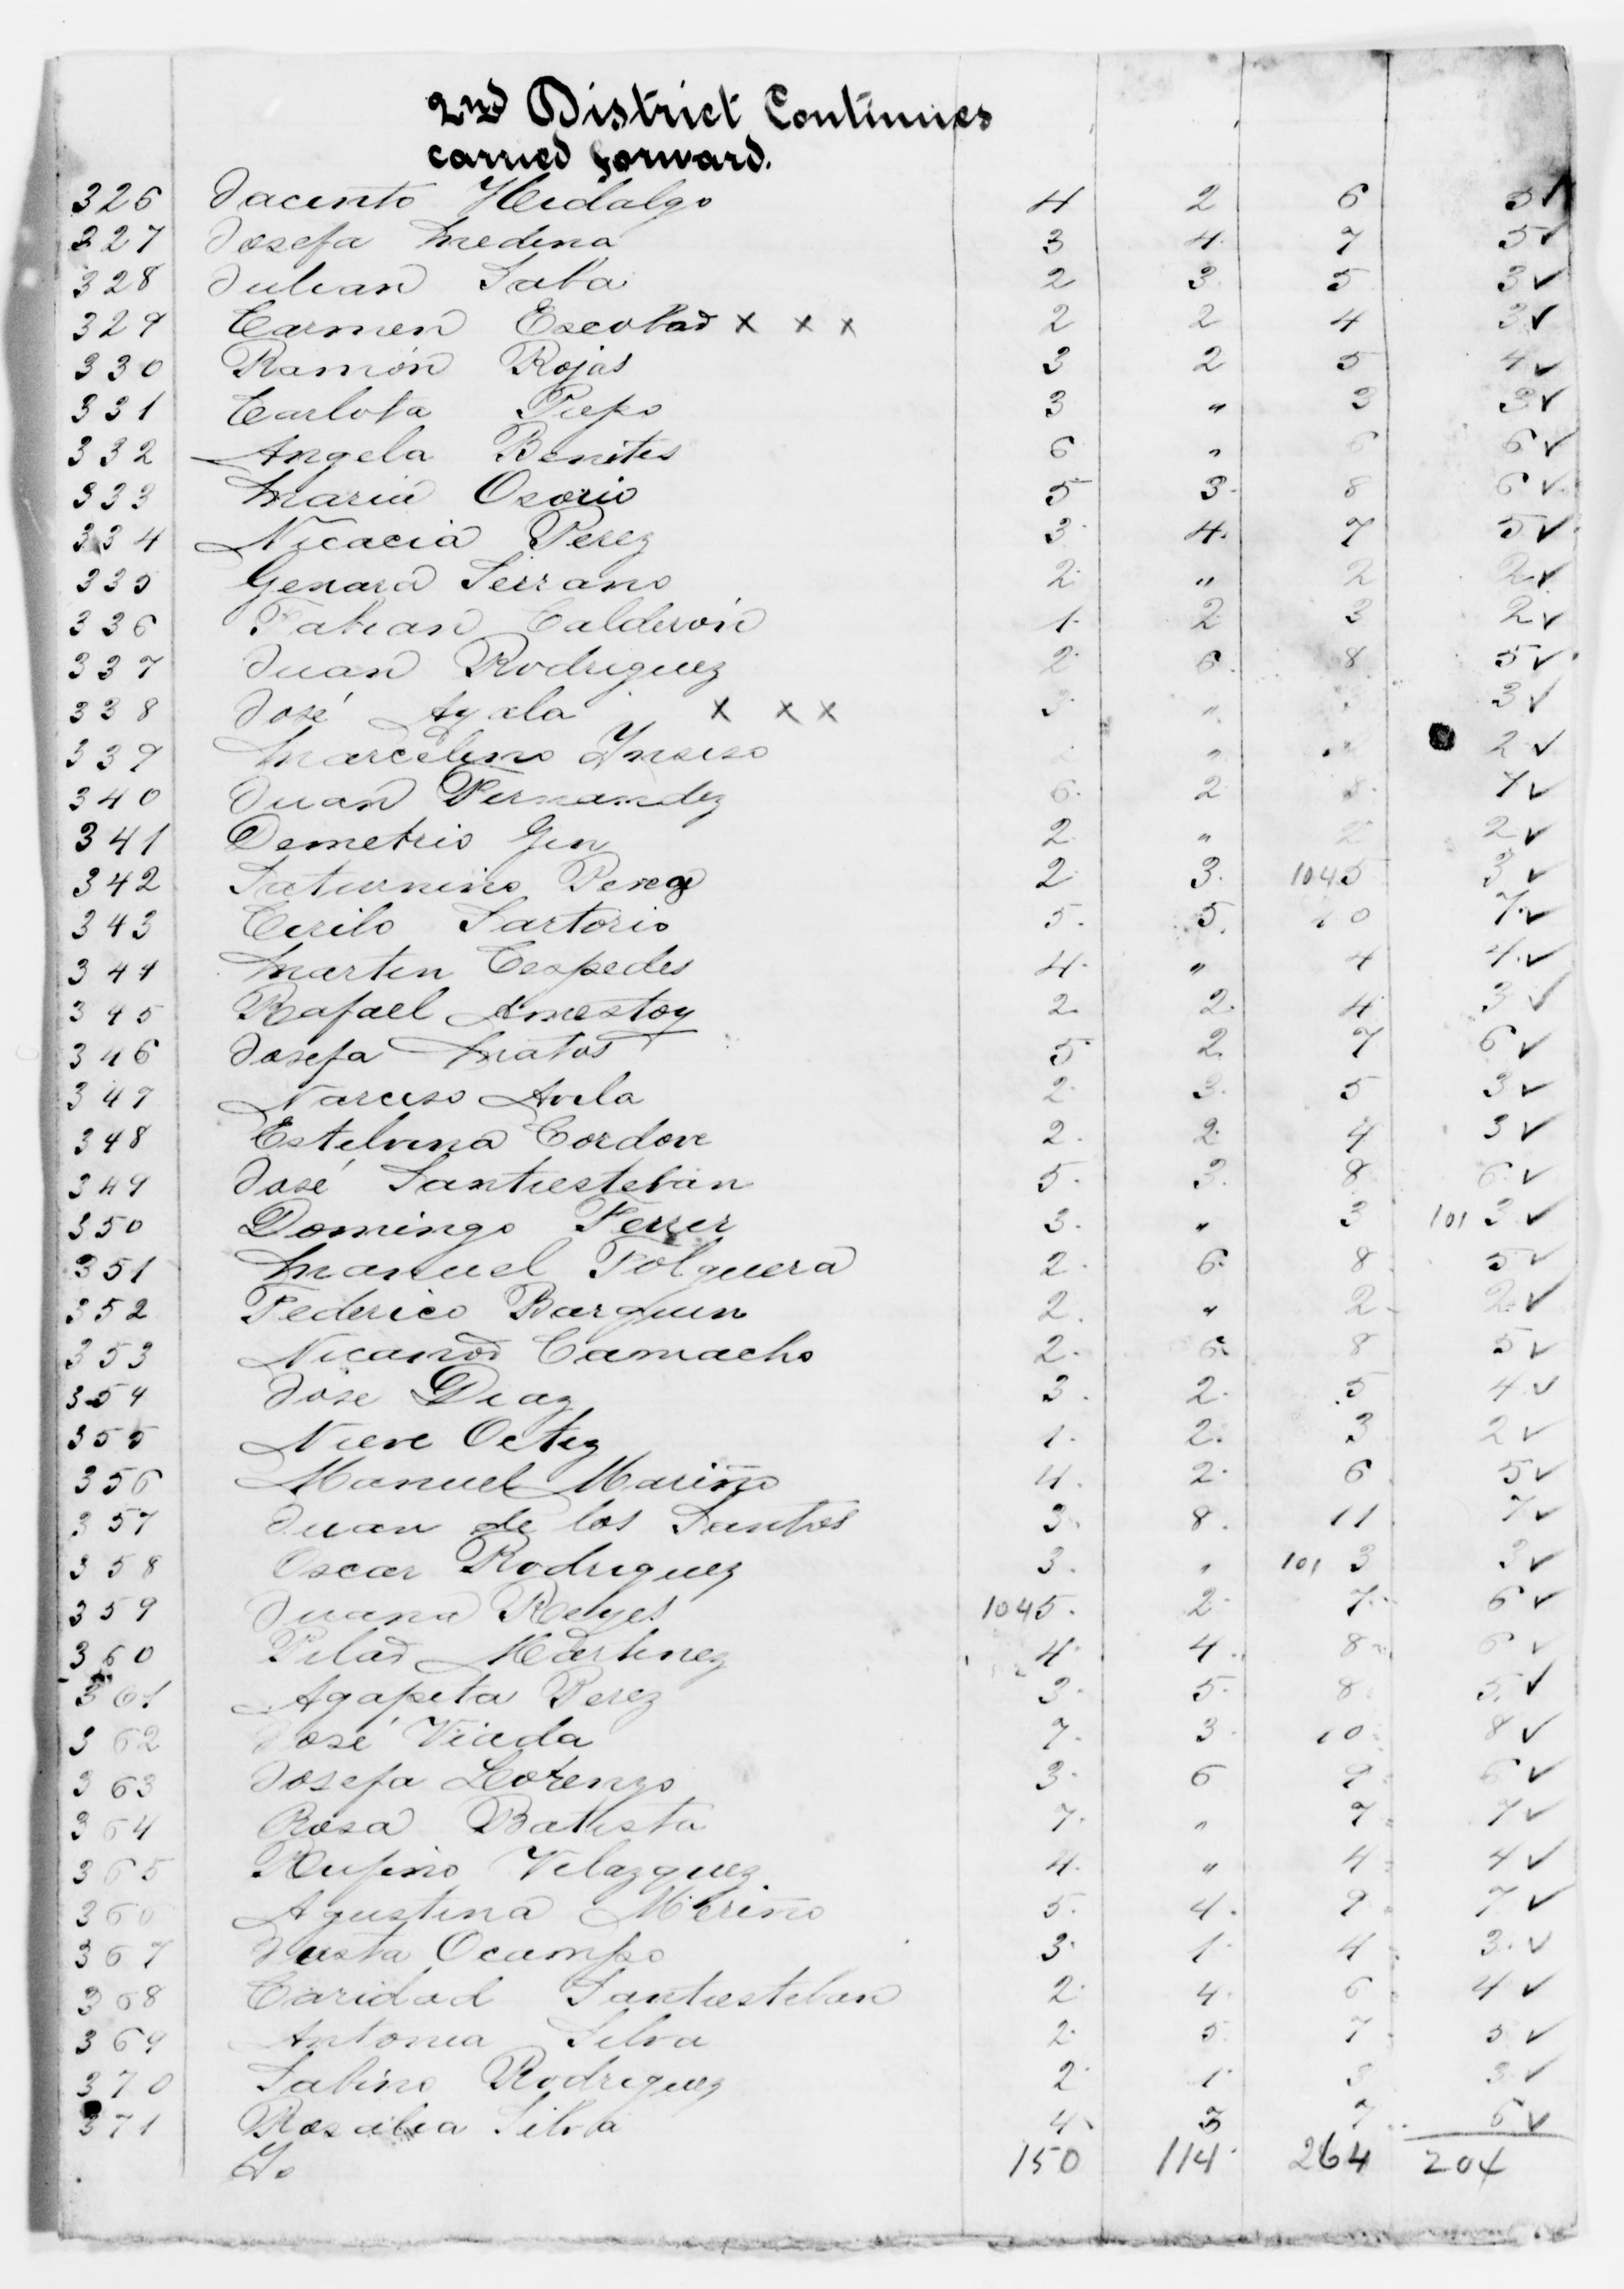 2nd District Continues
carried forward.
326 Jacinto Hidalgo 4 2 6 5✓
327 Josefa Medina 3 4. 7 5✓
328 Julian Saba 2 3. 5 3✓
329 Carmen Escobar x x x 2 2 4 3✓
330 Ramón Rojas 3 2 5 4✓
331 Carlota Pupo 3 " 3 3✓
332 Angela Benites 6 " 6 6✓
333 Maria Osorio 5 3. 8 6✓
334 Nicacia Perez 3 4. 7 5✓
335 Genara Serrano 2 " 2 2✓
336 Fabian Calderón 1. 2 3 2✓
337 Juan Rodriguez 2 6. 8 5✓
338 José Ayala x x x 3 " 3✓
339 Marcelino Ynsiso " 2✓
340 Juan Fernandez 6. 2 8. 7✓
341 Demetrio Gen 2. " 2 2✓
342 Saturnino Perez 2 3. 1045 3✓
343 Cirilo Sartorio 5. 5. 10 7✓
344 Martin Cespedes 4. " 4 4.✓
345 Rafael Amestoy 2. 2. 4 3✓
346 Josefa Matos 5 2. 7 6✓
347 Narciso Avila 2. 3. 5 3✓
348 Estelvina Cordove 2. 2. 4 3✓
349 José Santiesteban 5. 3. 8. 6.✓
350 Domingo Ferrer 3. " 3 101 3✓
351 Manuel Folguera 2. 6. 8 5✓
352 Federico Barquin 2. " 2 2.✓
353 Nicanor Camacho 2. 6. 8 5✓
354 Jose Diaz 3. 2. 5 4✓
355 Nieve Ortiz 1. 2. 3 2✓
356 Manuel Mariño 4. 2. 6 5✓
357 Juan de los Santos 3. 8. 11 7✓
358 Oscar Rodriguez 3. " 101 3 3✓
359 Juana Reyes 1045. 2. 7. 6✓
360 Pilar Martinez 4. 4. 8 6✓
361 Agapita Perez 3. 5. 8 5.✓
362 José Viada 7. 3. 10 8✓
363 Josefa Lorenzo 3. 6 9 6✓
364 Rosa Batista 7. " 7 7✓
365 Rufino Velazquez 4. " 4 4✓
366 Agustina Meriño 5. 4. 9 7✓
367 Justa Ocampo 3. 1. 4 3.✓
368 Caridad Santiesteban 2. 4. 6 4✓
369 Antonia Silva 2. 5. 7 5✓
370 Sabino Rodriguez 2. 1. 3 3.✓
371 Rosalia Silva 4. 3 7 6✓
150 114. 264 204